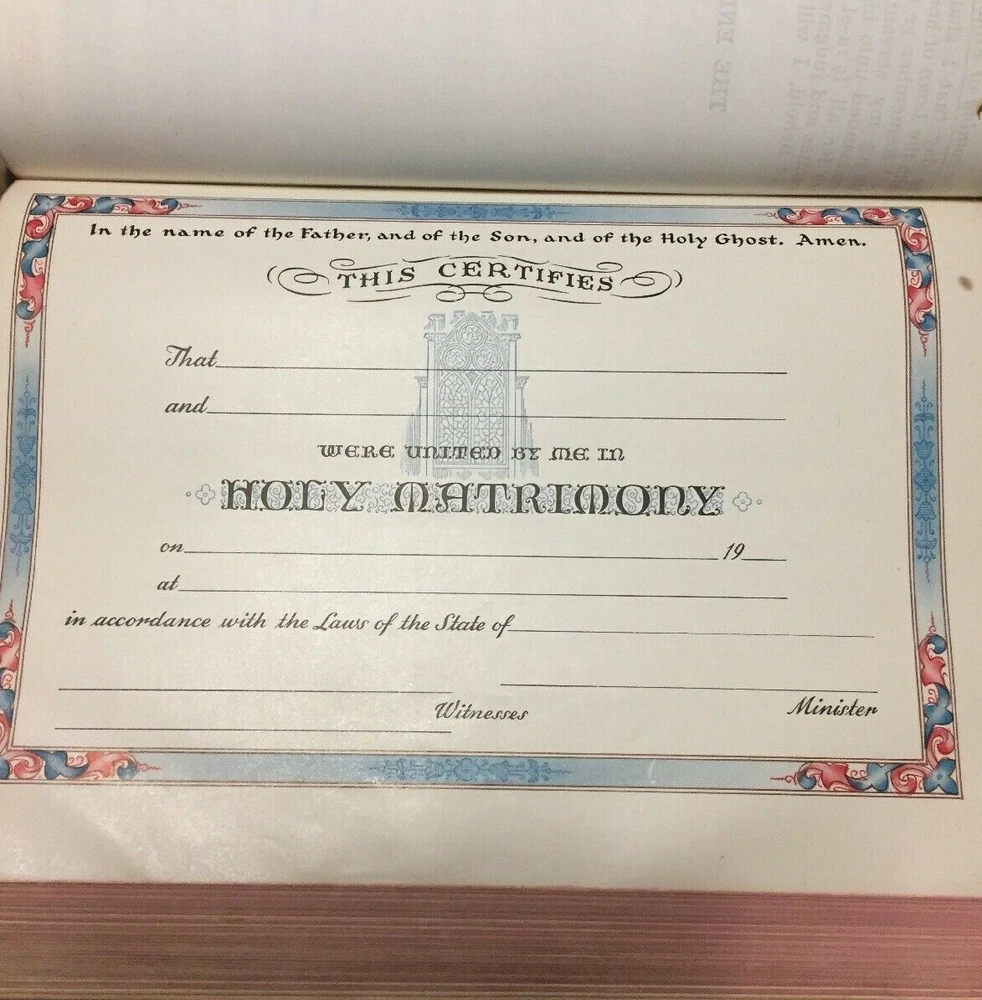 THE END
In the name of the Father, and of the Son, and of the Holy Ghost. Amen.
THIS CERTIFIES
That
and
WERE UNITED BY ME IN
HOLY MATRIMONY
on 19
at
in accordance with the Laws of the State of
Witnesses Minister